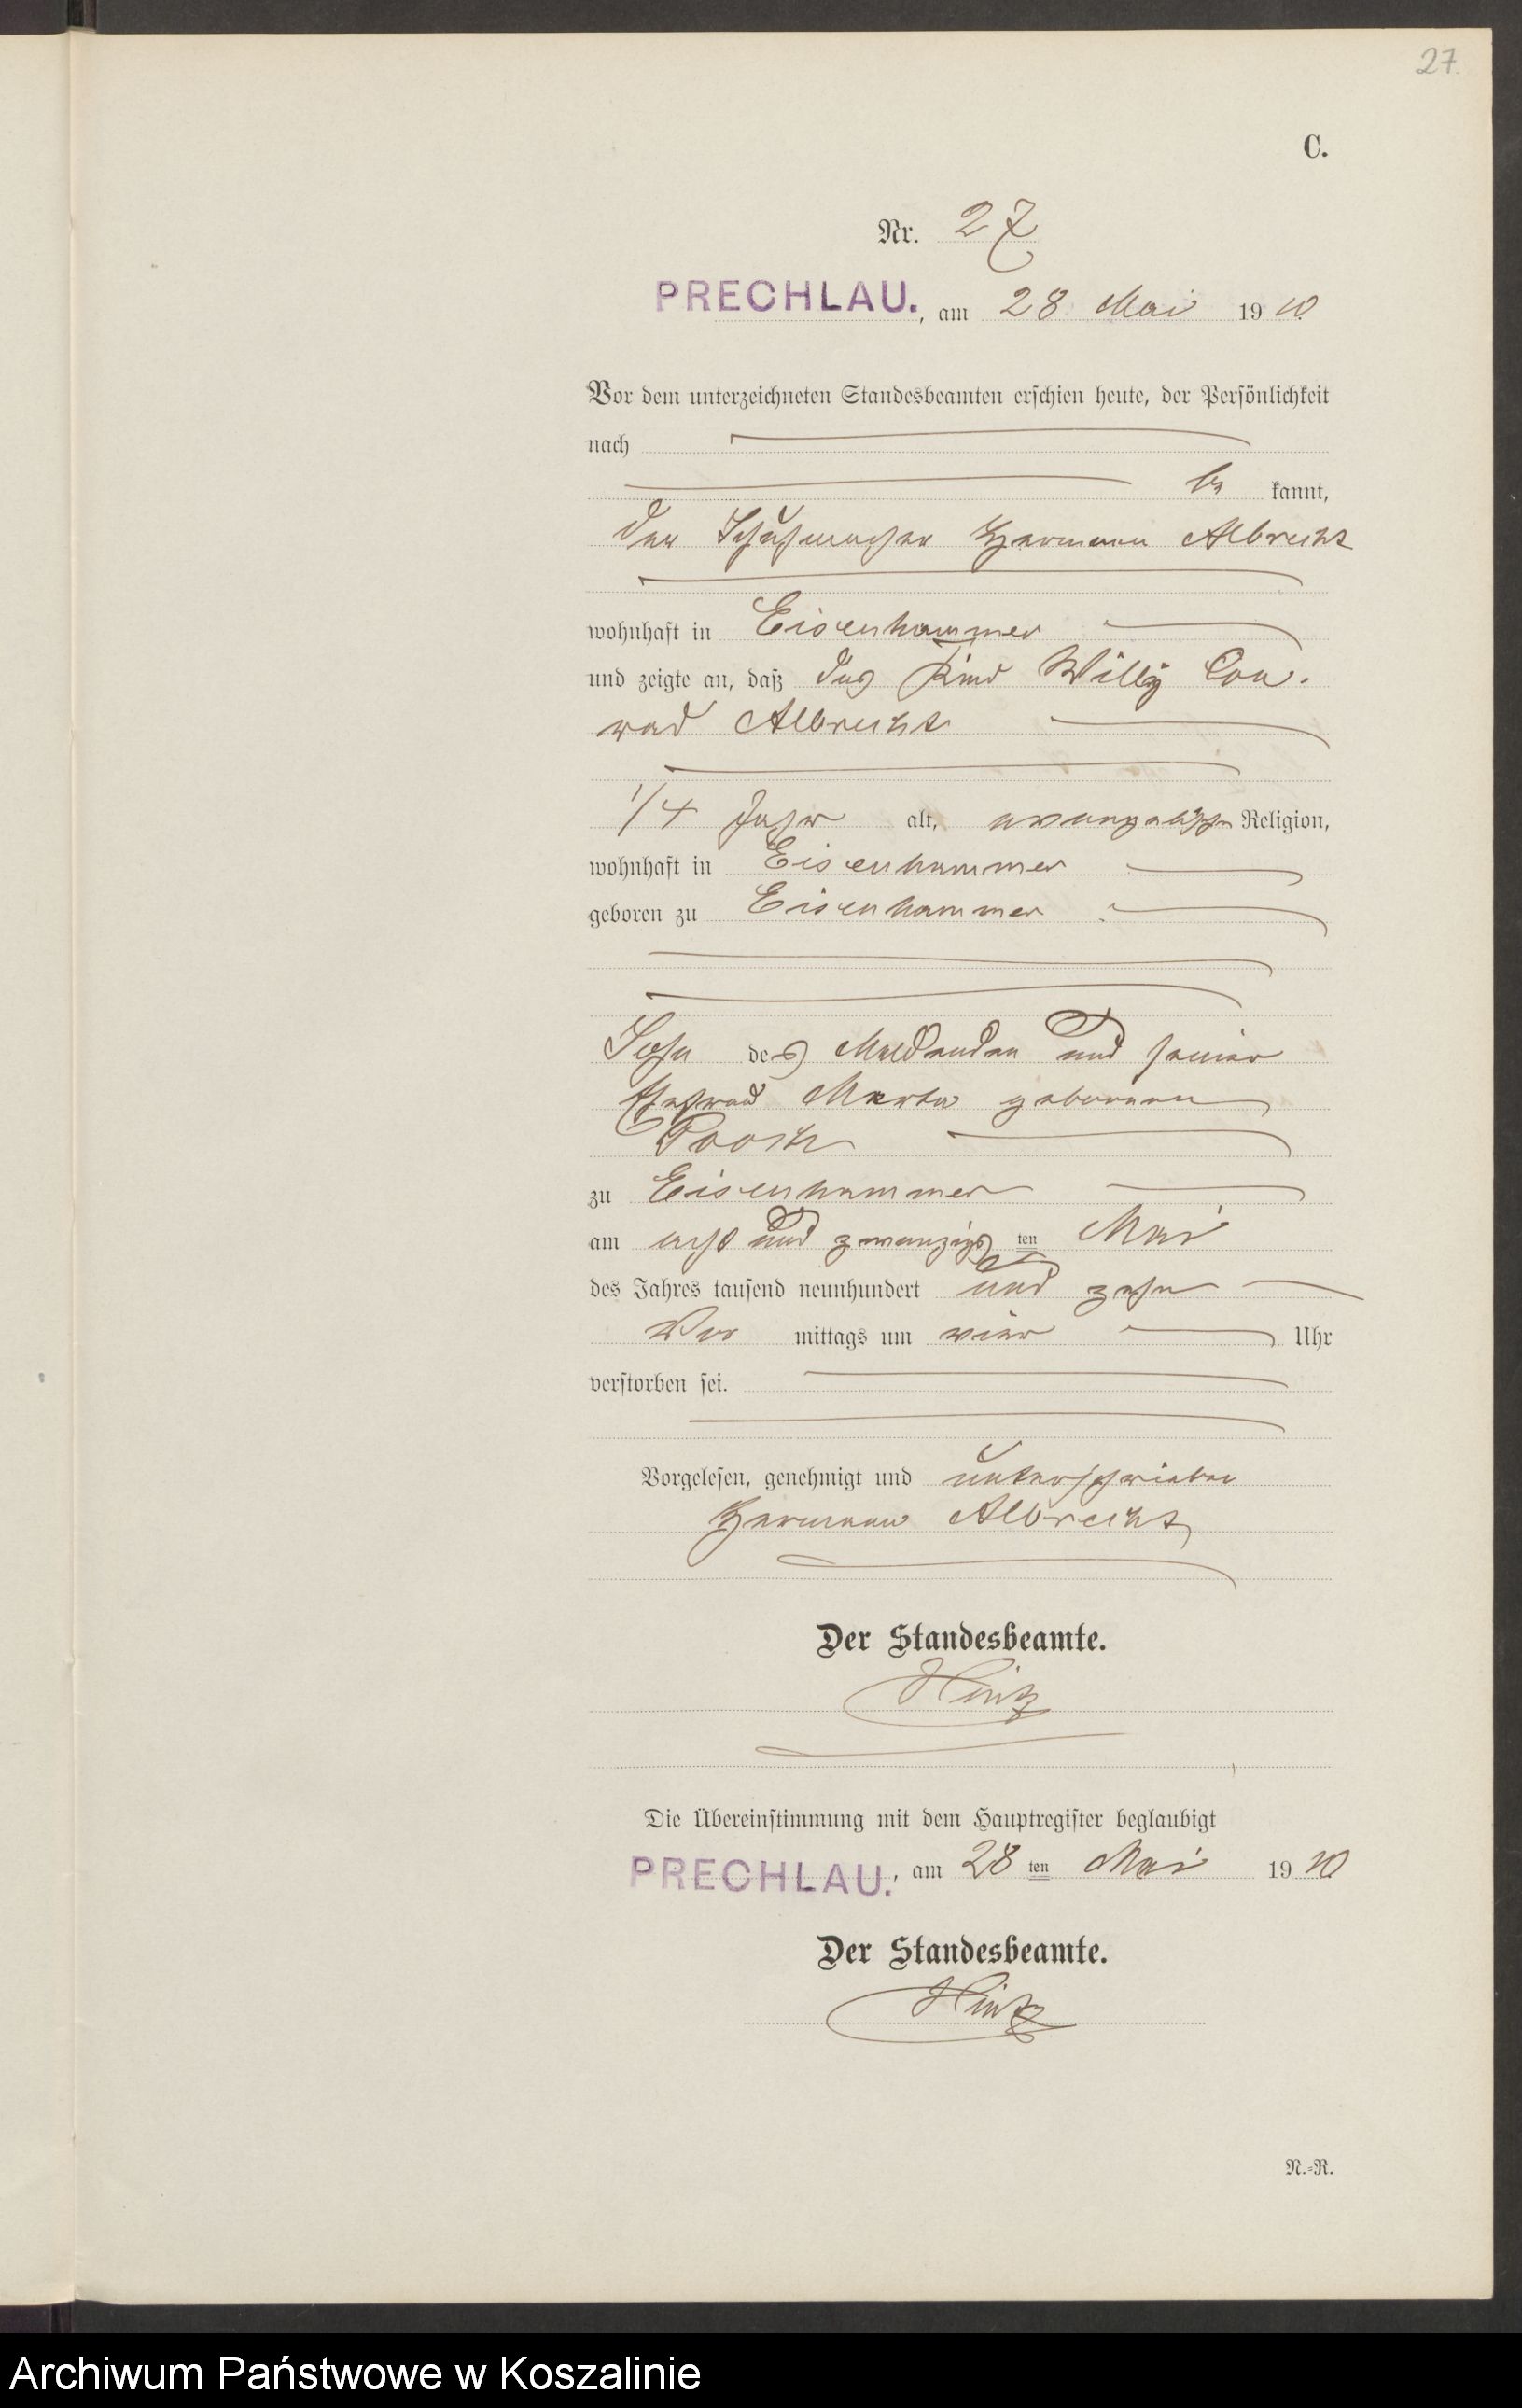 27.
C.
Nr. 27
PRECHLAU., am 28 Mai 1910.
Vor dem unterzeichneten Standesbeamten erschien heute, der Persönlichkeit
nach
be kannt,
der Schuhmacher Hermann Albrecht
wohnhaft in Eisenhammer
und zeigte an, daß das Kind Willy Con-
rad Albrecht
1/4 Jahr alt, evangelischer Religion,
wohnhaft in Eisenhammer
geboren zu Eisenhammer
Sohn des Meldenden und seiner
Ehefrau Marta geborenen
zu Eisenhammer
am acht und zwanzigs ten Mai
des Jahres tausend neunhundert und zehn
Vor mittags um vier Uhr
verstorben sei.
Vorgelesen, genehmigt und unterschrieben
Hermann Albrecht
Der Standesbeamte.
Hintz
Die Übereinstimmung mit dem Hauptregister beglaubigt
PRECHLAU., am 28 ten Mai 1910
Der Standesbeamte.
Hintz
N.-R.
Archiwum Państwowe w Koszalinie